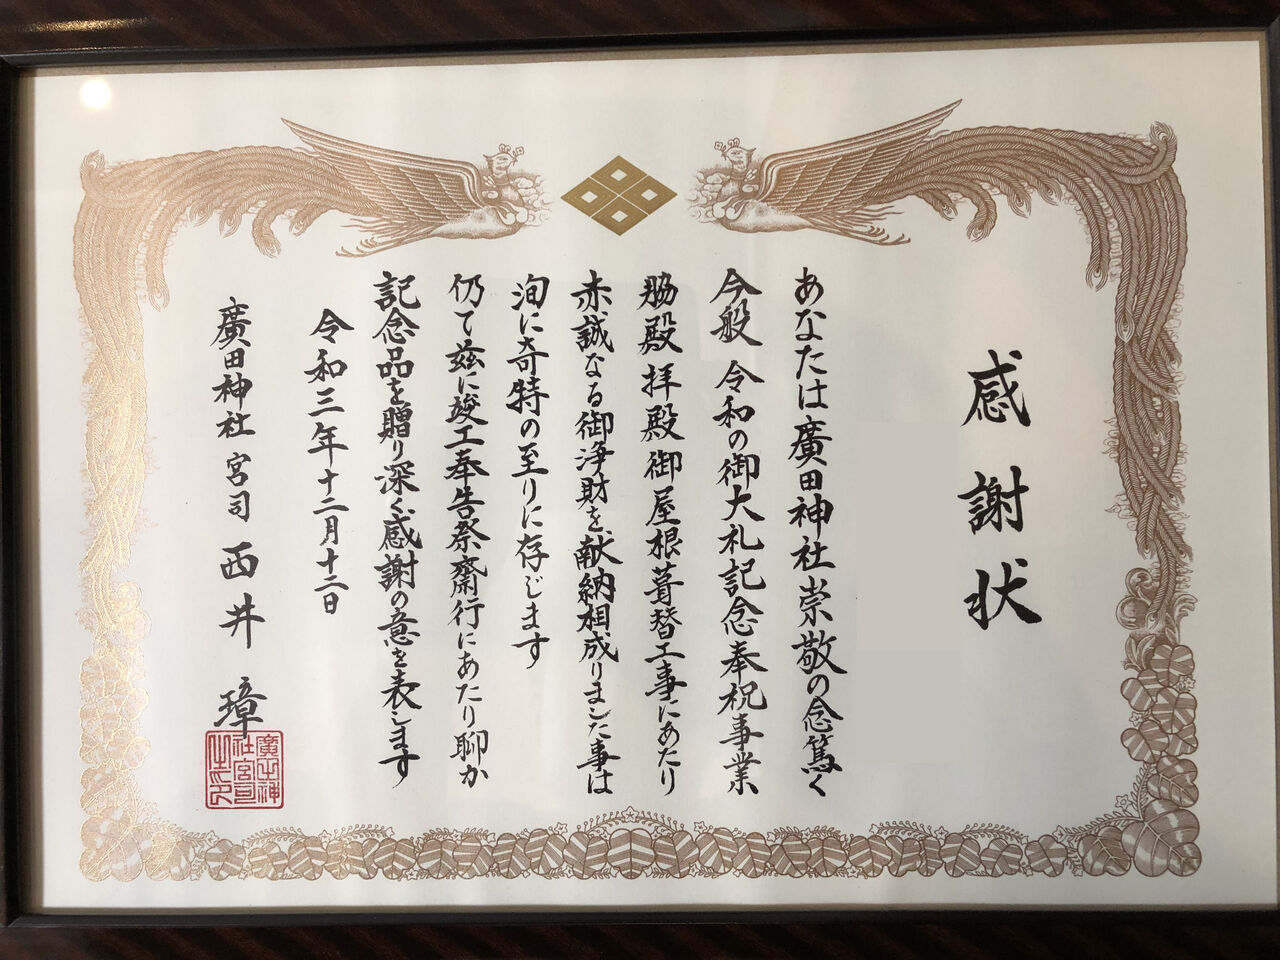 感謝状
あなたは廣田神社崇敬の念篤く
今般 令和の御大礼記念奉祝事業
脇殿拝殿御屋根葺替工事にあたり
赤誠なる御浄財を献納相成りました事は
洵に奇特の至りに存じます
仍て茲に竣工奉告祭齋行にあたり聊か
記念品を贈り深く感謝の意を表します
令和三年十二月十二日
廣田神社 宮司 西井 璋
廣田神
社宮司
之印